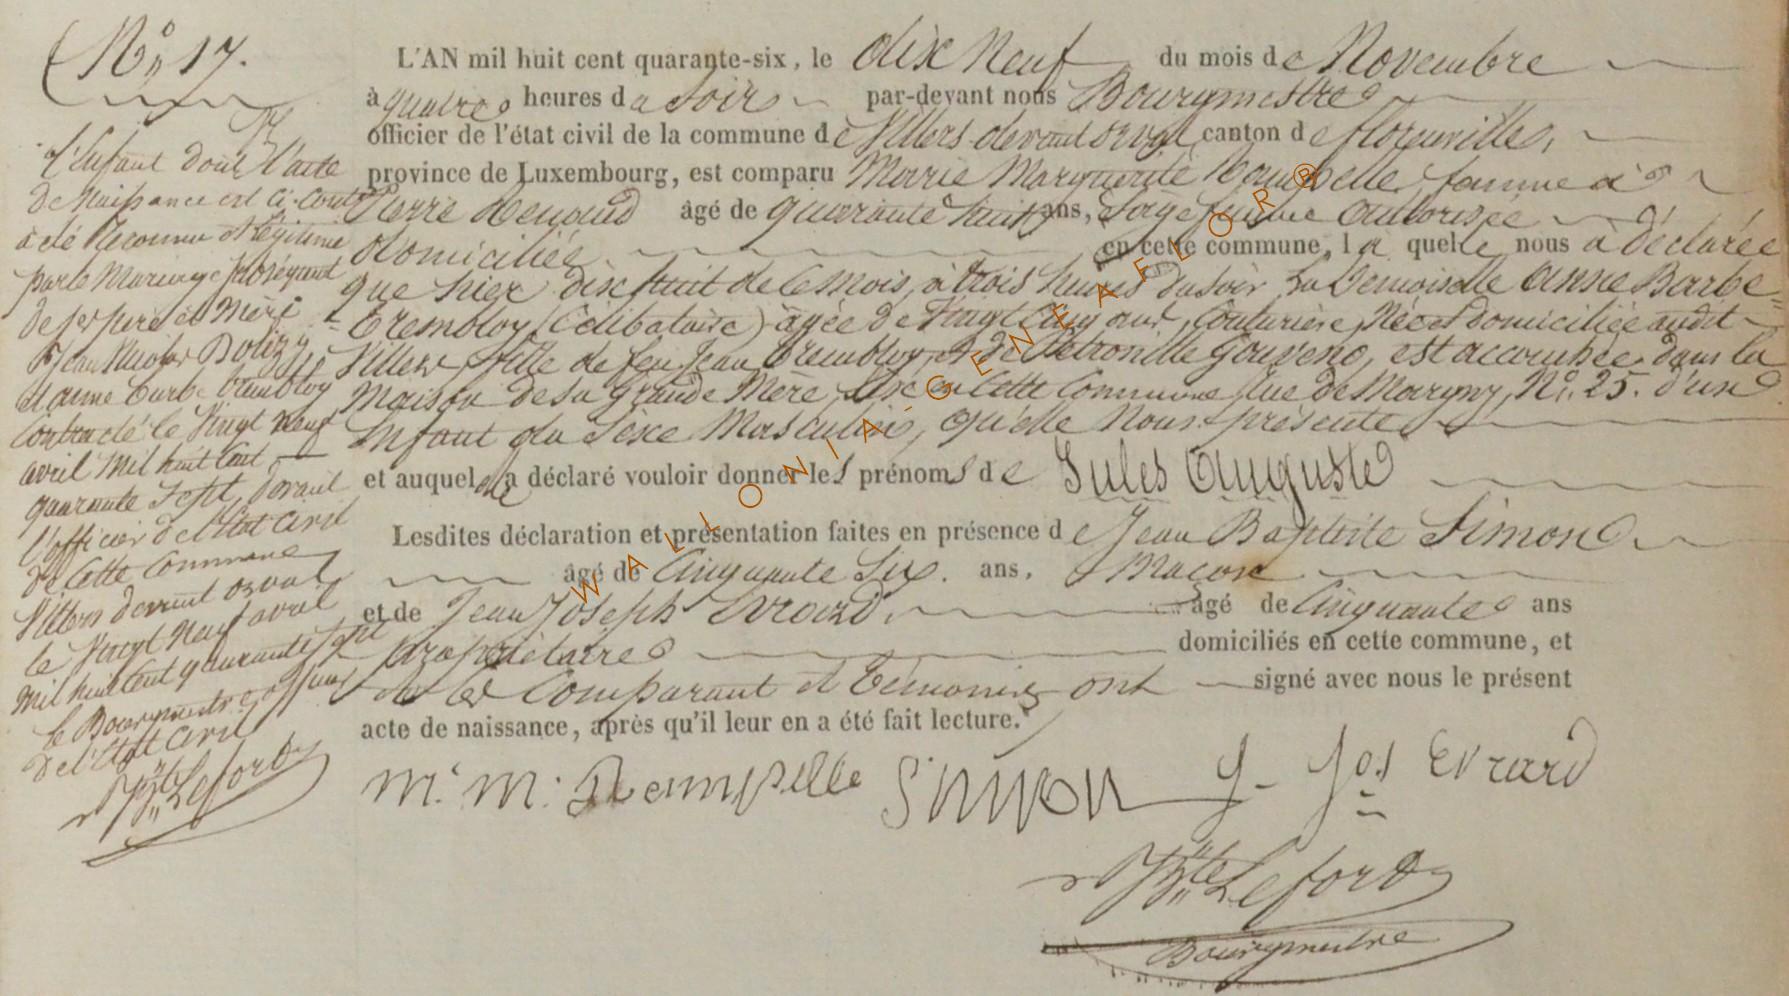 N° 17.
L'Enfant dont l'acte
de Naissance est ci-contre
à été Reconnu et Légitimé
par le Mariage subséquent
de ses père et Mère
Jean Nicolas Dolizy
et anne barbe trembloy
Contracté le Vingt neuf
avril mil huit cent
quarante Sept, devant
l'officier de l'état civil
de Cette Commune
Villers devant orval
le Vingt Neuf avril
mil huit cent quarante sept
le Bourgmestre officier
de l'état civil
Bte Lefort
L'AN mil huit cent quarante-six, le dix Neuf du mois de Novembre
à quatre heures du Soir par-devant nous Bourgmestre
officier de l'état civil de la commune de Villers devant orval canton de florenville,
province de Luxembourg, est comparu Marie Marguerite femme à
Pierre âgé de quarante huit ans, Sage femme autorisée
domiciliée en cette commune, laquelle nous à déclarée
que hier dix huit de ce mois, à trois heures du soir La Demoiselle anne Barbe
trembloy (Célibataire) agée de Vingt Cinq ans, Couturière, Née et domiciliée audit
Villers fille de feu Jean trembloy, et de Petronille Gouveno, est accouchée dans la
Maison de sa Grande Mère, Sise en Cette Commune, Rue de Margny, N° 25. d'un
Enfant du Sèxe Masculin, qu'elle Nous présente
et auquel elle a déclaré vouloir donner les prénoms de Jules Auguste
Lesdites déclaration et présentation faites en présence de Jean Baptiste Simon
âgé de Cinquante Six. ans, Maçon
et de Jean Joseph Evrard. âgé de Cinquante ans
propriétaire domiciliés en cette commune, et
Comparant et témoins ont signé avec nous le présent
acte de naissance, après qu'il leur en a été fait lecture.
M. M. Simon J. Jos Evrard
Bte Lefort
Bourgmestre
WALLONIA-GENEAFLOR®